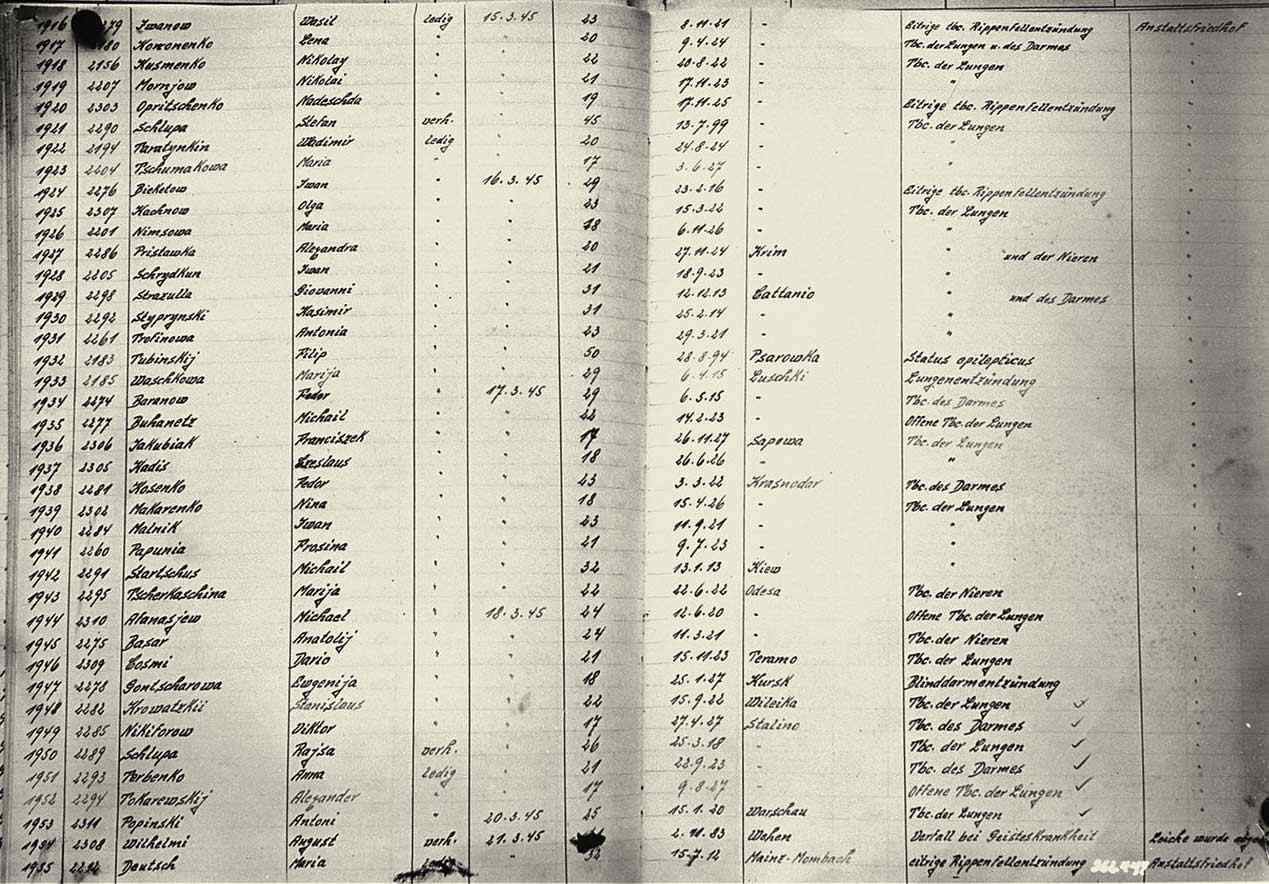 1916 Iwanow Wasil ledig 15.3.45 23 8.11.21 - Eitrige tbc. Rippenfellentzündung Anstaltsfriedhof
1917 Kononenko Lena " " 20 9.4.24 - Tbc. der Lungen u. des Darmes "
1918 2156 Kusmenko Nikolay " " 22 20.8.22 - Tbc. der Lungen "
1919 2207 Mornjow Nikolai " " 21 17.11.23 - " "
1920 2303 Opritschenko Nadeschda " " 19 17.11.25 - Eitrige tbc. Rippenfellentzündung "
1921 2290 Schlupa Stefan verh. " 45 13.7.99 - Tbc. der Lungen "
1922 2194 Taratynkin Wladimir ledig " 20 24.8.24 - " "
1923 2204 Tschumakowa Maria " " 17 3.6.27 - " "
1924 2276 Bieketow Iwan " 16.3.45 29 23.2.16 - Eitrige tbc. Rippenfellentzündung "
1925 2307 Kachnow Olga " " 23 15.3.22 - Tbc. der Lungen "
1926 2201 Nimsowa Maria " " 18 6.11.26 - " "
1927 2286 Pristawka Alexandra " " 20 27.11.24 Krim " und der Nieren "
1928 2205 Schrydkun Iwan " " 21 18.9.23 - " "
1929 2298 Strazulla Giovanni " " 31 12.12.13 Cattanio " und des Darmes "
1930 2292 Styprynski Kasimir " " 31 25.2.14 - " "
1931 2261 Trofinowa Antonia " " 23 29.3.21 - " "
1932 2183 Tubinskij Filip " " 50 28.8.94 Psarowka Status epilepticus "
1933 2185 Waschkowa Marija " " 29 6.4.15 Luschki Lungenentzündung "
1934 2274 Baranow Fedor " 17.3.45 29 6.5.15 - Tbc. des Darmes "
1935 2277 Buhanetz Michail " " 22 14.2.23 - Offene Tbc. der Lungen "
1936 2306 Jakubiak Franciszek " " 17 26.11.27 Sapowa Tbc. der Lungen "
1937 2305 Kadis Czeslaus " " 18 26.6.26 - " "
1938 2281 Kosenko Fedor " " 23 3.3.22 Krasnodar Tbc. des Darmes "
1939 2302 Makarenko Nina " " 18 15.4.26 - Tbc. der Lungen "
1940 2284 Malnik Iwan " " 23 11.9.21 - " "
1941 2260 Papunia Frosina " " 21 9.7.23 - " "
1942 2291 Startschus Michail " " 32 13.1.13 Kiew " "
1943 2295 Tscherkaschina Marija " " 22 22.6.22 Odesa Tbc. der Nieren "
1944 2310 Afanasjew Michael " 18.3.45 24 12.6.20 - Offene Tbc. der Lungen "
1945 2275 Basar Anatolij " " 24 11.3.21 - Tbc. der Nieren "
1946 2309 Cosmi Dario " " 21 15.11.23 Teramo Tbc. der Lungen "
1947 2278 Gontscharowa Ewgenija " " 18 25.1.27 Kursk Blinddarmentzündung "
1948 2282 Krowatzkii Stanislaus " " 22 15.9.22 Wileika Tbc. der Lungen ✓ "
1949 2285 Nikiforow Viktor " " 17 27.4.27 Stalino Tbc. des Darmes ✓ "
1950 2289 Schlupa Rajsa verh. " 26 25.3.18 - Tbc. der Lungen ✓ "
1951 2293 Terbenko Anna ledig " 21 22.9.23 - Tbc. des Darmes ✓ "
1952 2294 Tokarewskij Alexander " " 17 9.8.27 - Offene Tbc. der Lungen ✓ "
1953 2311 Popinski Antoni " 20.3.45 25 15.1.20 Warschau Tbc. der Lungen ✓ "
1954 2308 Wilhelmi August verh. 21.3.45 2.11.83 Wehen Verfall bei Geisteskrankheit Leiche wurde
1955 Deutsch Maria ledig " 32 15.7.12 Mainz-Mombach eitrige Rippenfellentzündung Anstaltsfriedhof